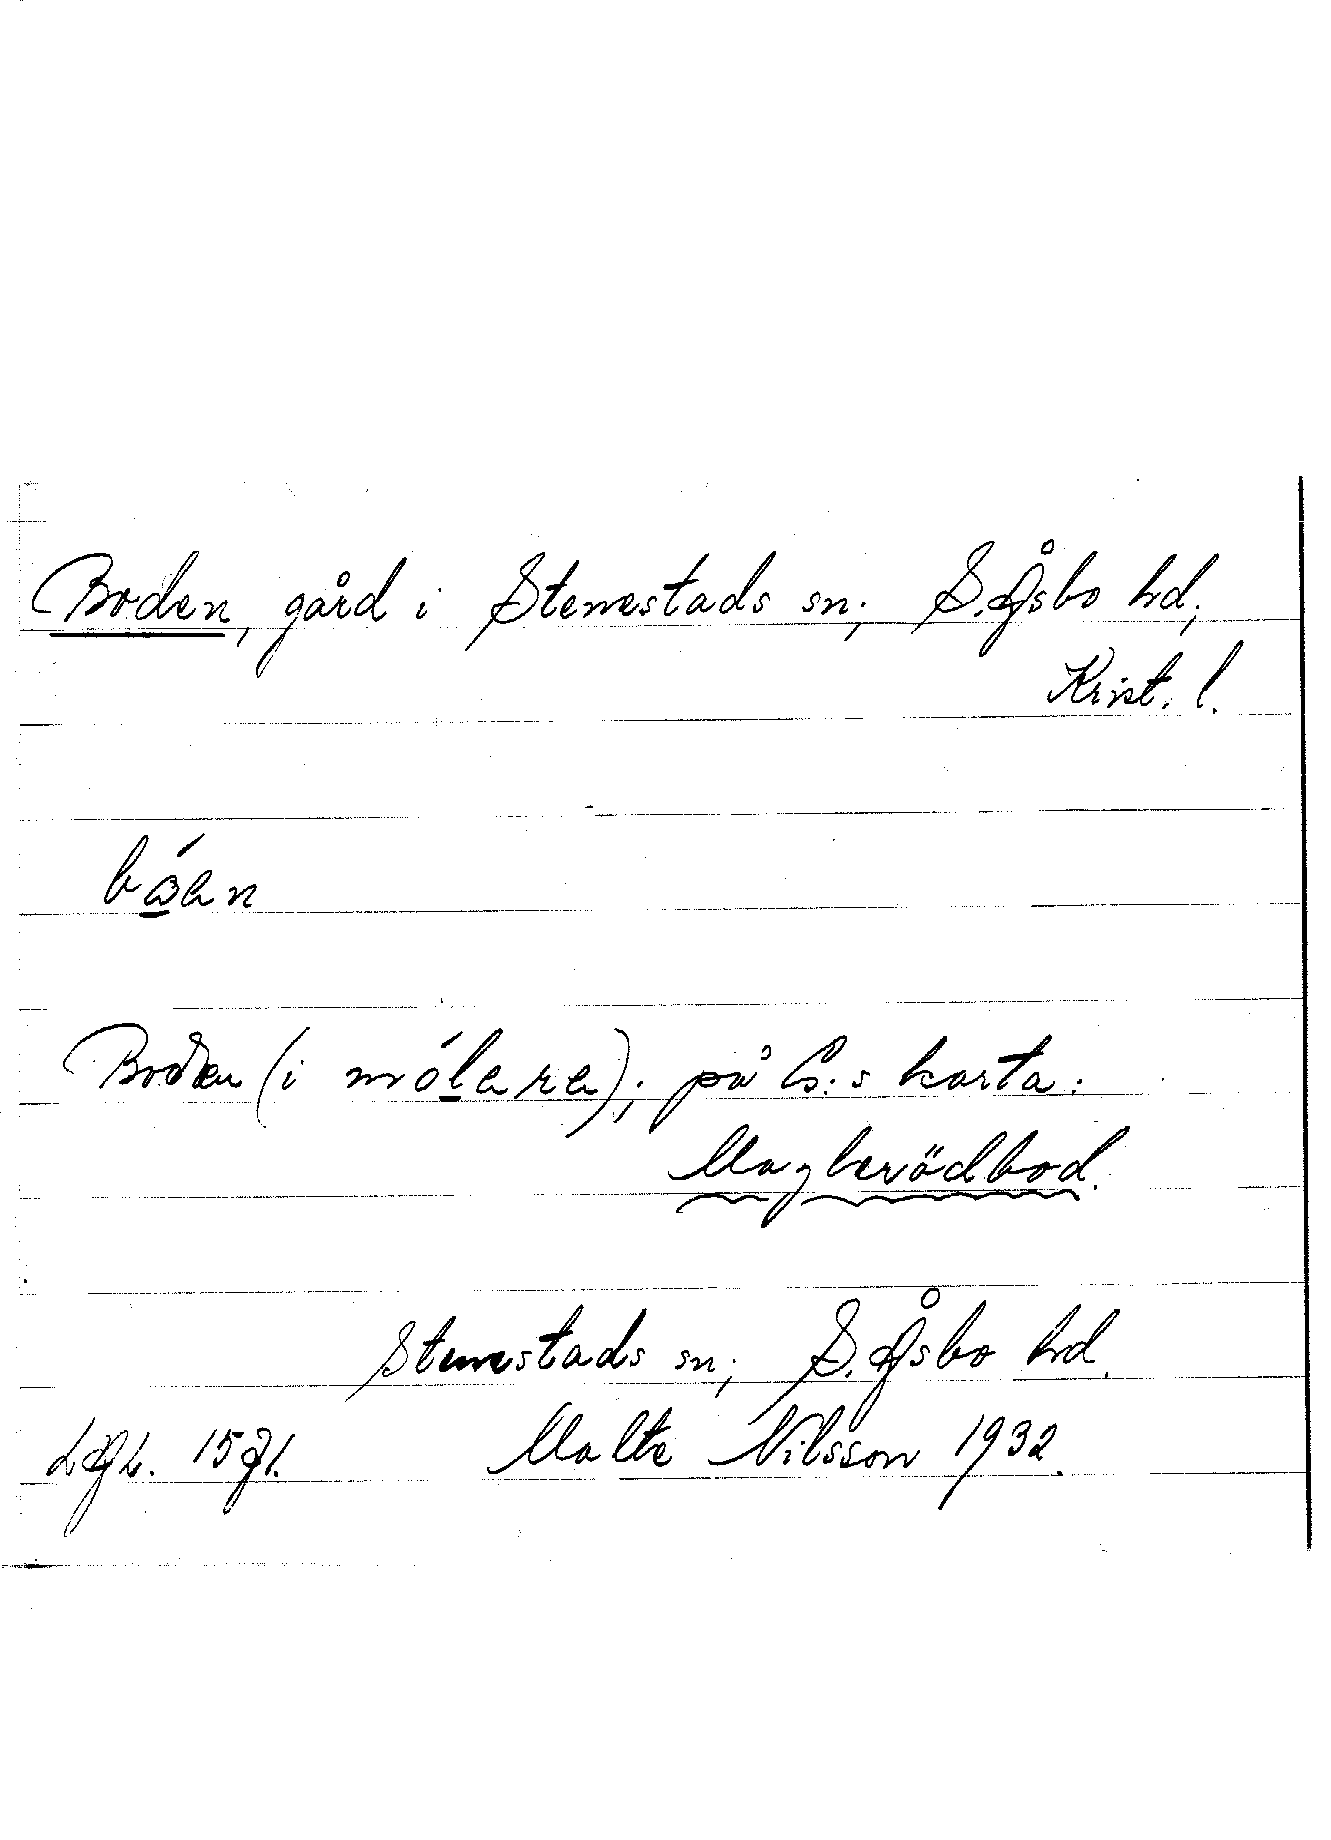 Boden, gård i Stenestads sn; S. Åsbo hd;
Krist. l.
Boden (i mólere); på G:s karta:
Maglerödbod.
Stenestads sn; S. Åsbo hd.
Malte Nilsson 1932.